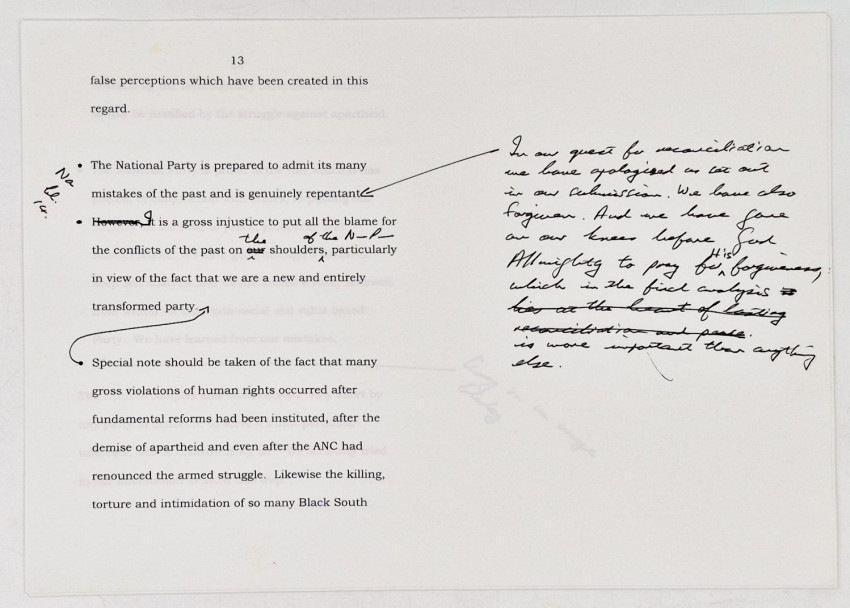 13
false perceptions which have been created in this
regard.
• The National Party is prepared to admit its many
mistakes of the past and is genuinely repentant
• However, It is a gross injustice to put all the blame for
the of the N-P-
the conflicts of the past on our shoulders, particularly
in view of the fact that we are a new and entirely
transformed party.
• Special note should be taken of the fact that many
gross violations of human rights occurred after
fundamental reforms had been instituted, after the
demise of apartheid and even after the ANC had
renounced the armed struggle. Likewise the killing,
torture and intimidation of so many Black South
Na
In our quest for reconciliation
we have apologised as set out
in our submission. We have also
forgiven. And we have gone
on our knees before God
Allmighty to pray for His forgiveness,
which in the final analysis is
lies at the heart of lasting
reconciliation and peace.
is more important than anything
else.